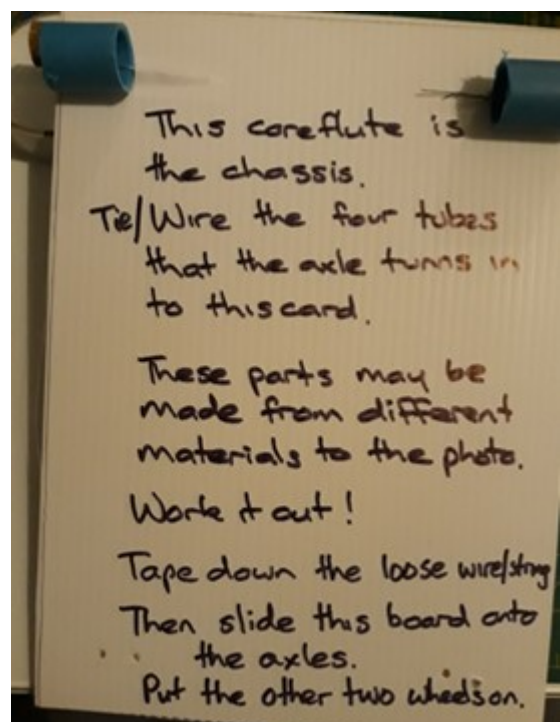 This coreflute is
the chassis.
Tie/Wire the four tubes
that the axle turns in
to this card.
These parts may be
made from different
materials to the photo.
Work it out!
Tape down the loose wire/string
Then slide this board onto
the axles.
Put the other two wheels on.